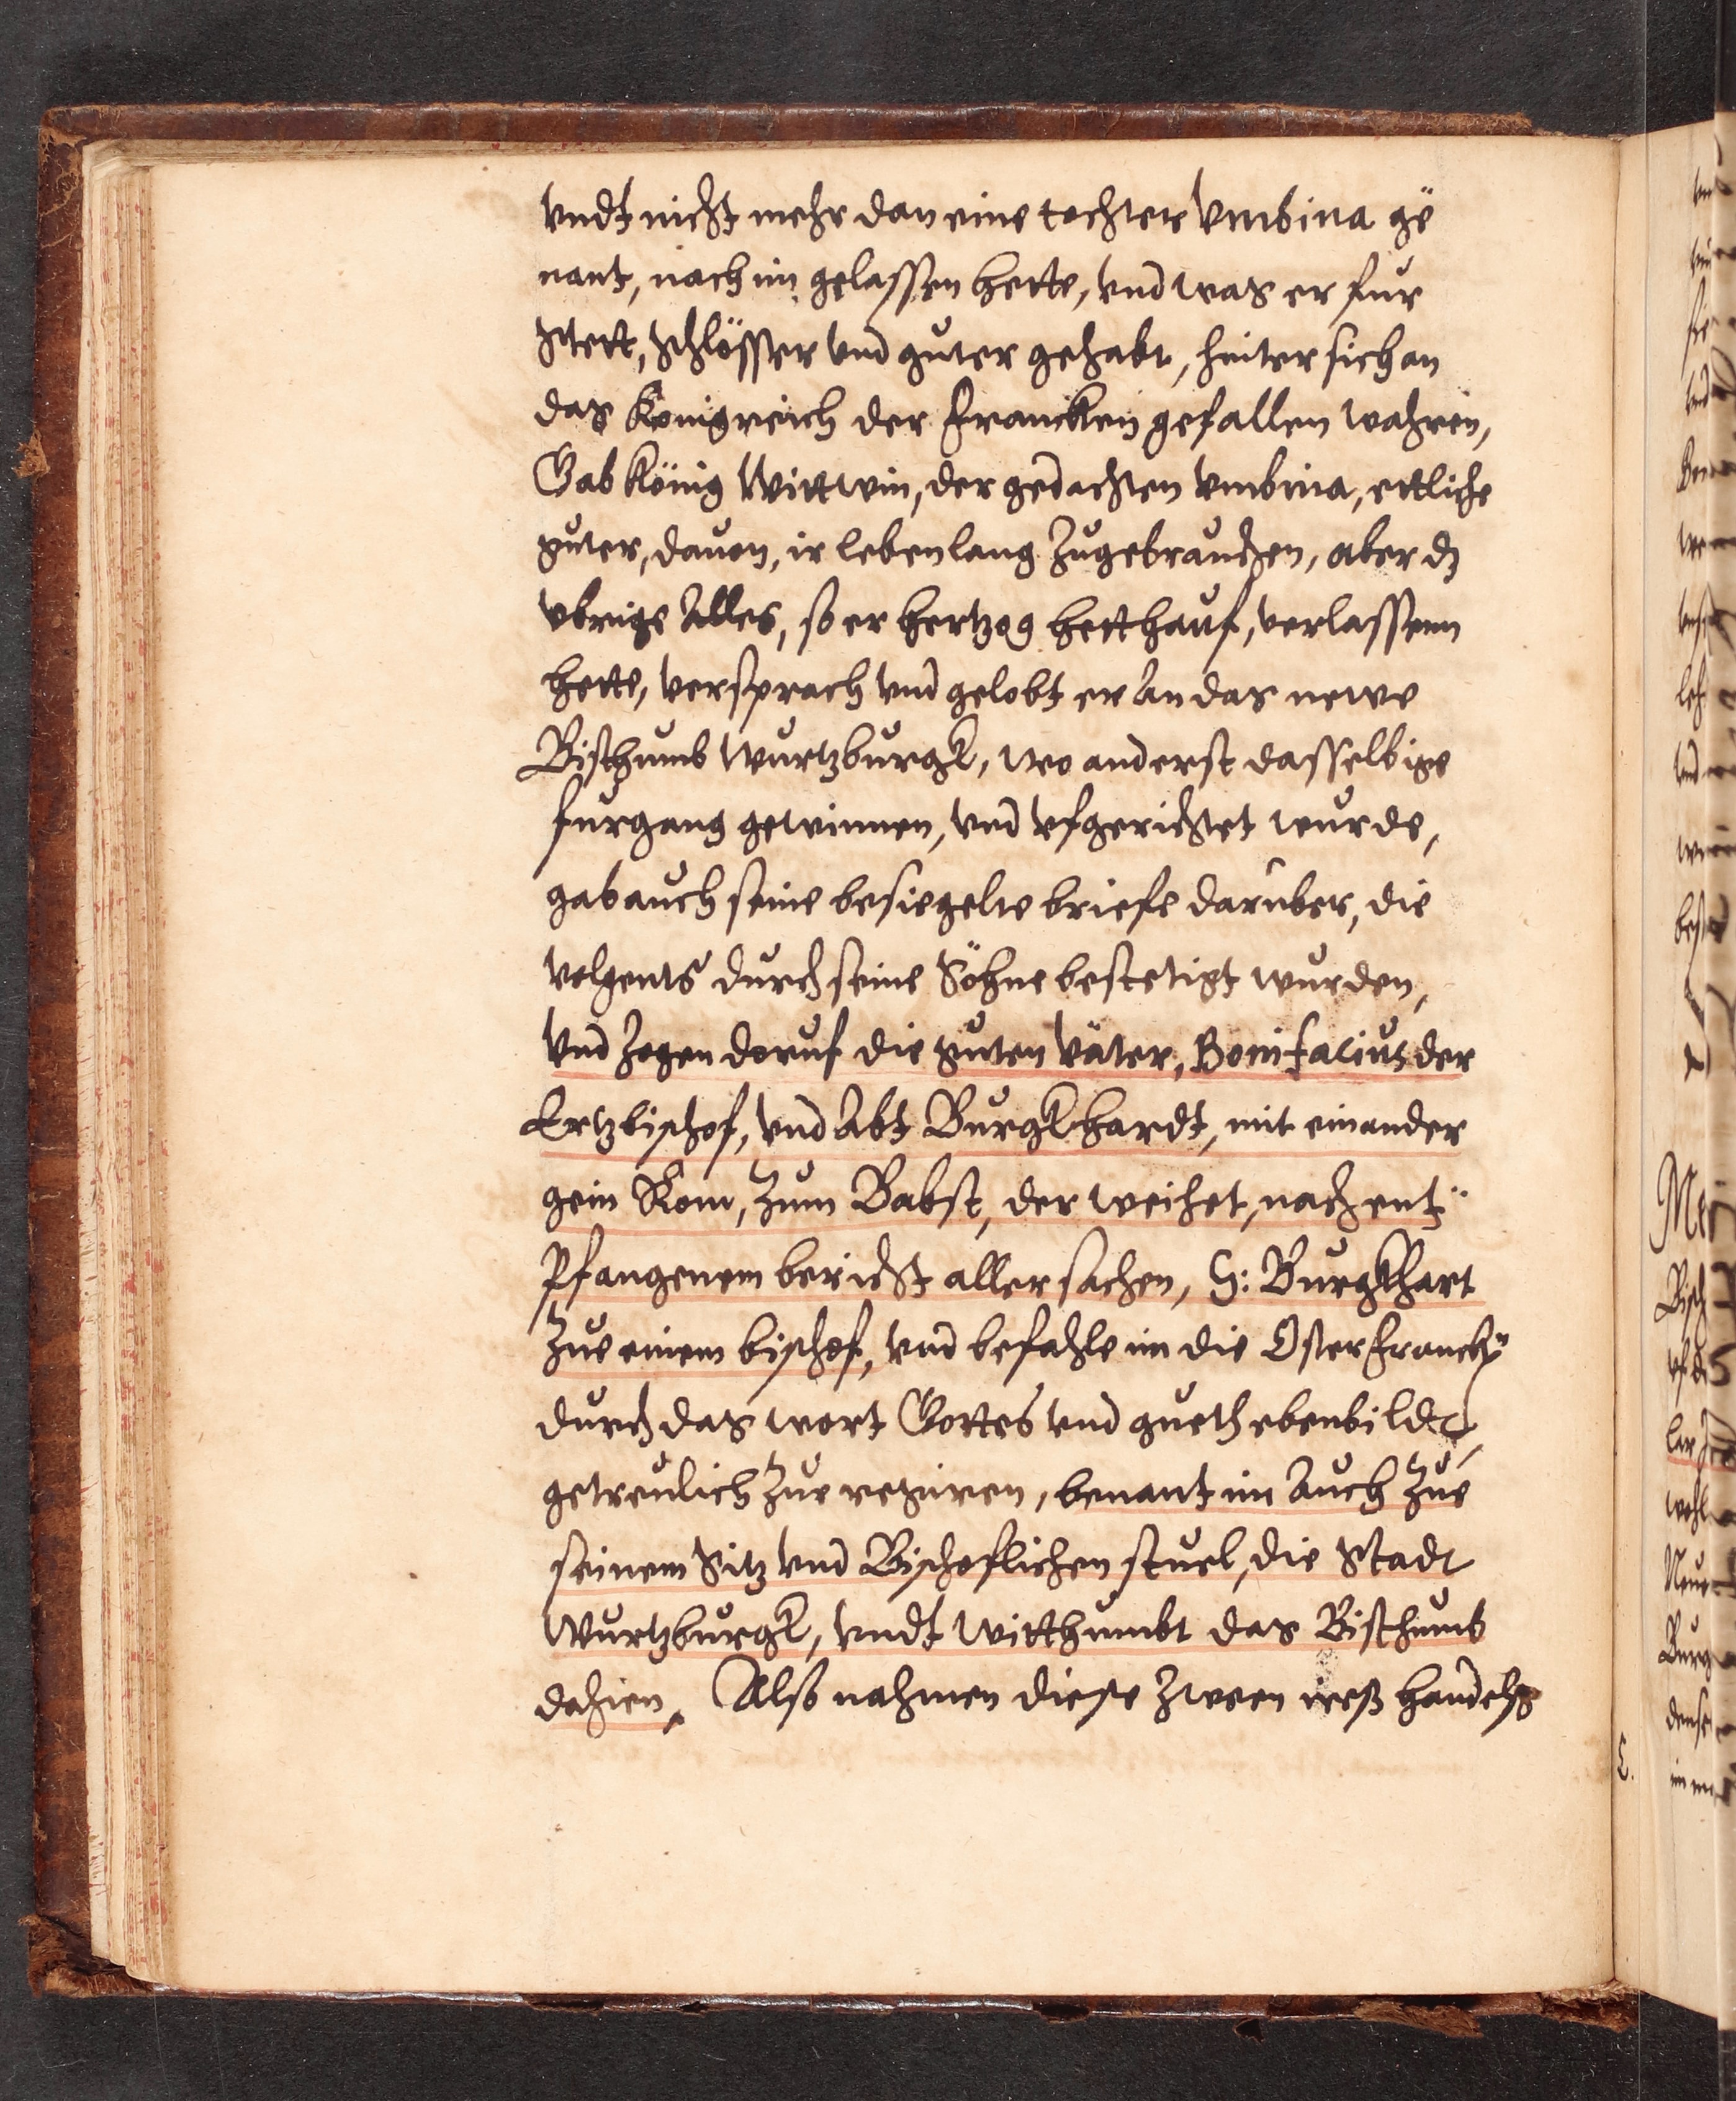 vndt nicht mehr dan eine tochter Vmbina ge¨
nant, nach im gelassen hette, vnd was er fur
Stett, Schlösser vnd guter gehabt, hinter sich an
das Konigreich der Francken gefallen wahren,
Gab König Wittwin, der gedachten Vmbina, ettliche
guter, dauon, ir lebenlang zugebrauchen, aber dz
vbrige Alles, so er hertzog hetthauf, verlassenn
hette, versprach vnd gelobt er An das newe
Bisthumb Wurtzburgk, wo anderst dasselbige
furgang gewinnen, vnd vfgerichtet wurde,
gab auch seine besiegelte briefe daruber, die
volgents durch seine Söhne bestetigt wurden,
Vnd zogen doruf die guten Väter, Bonifacius der
Ertzbischof, vnd Abt Burgkhardt, mit einander
gein Rom, zum Babst, der weihet, nach ent¨
Pfangenem bericht aller sachen, S: Burgkhart
zue einem bischof, vnd befahle im die Osterfrancken
durch das wort Gottes vnd gueth ebenbilde
getreulich zue regiren, benant im Auch zue
seinem Sitz vnd Bischoflichen stuel, die Stadt
Wurtzburgk, vndt witthumbt das Bisthumb
dahien. Also nahmen diese zween ires handels